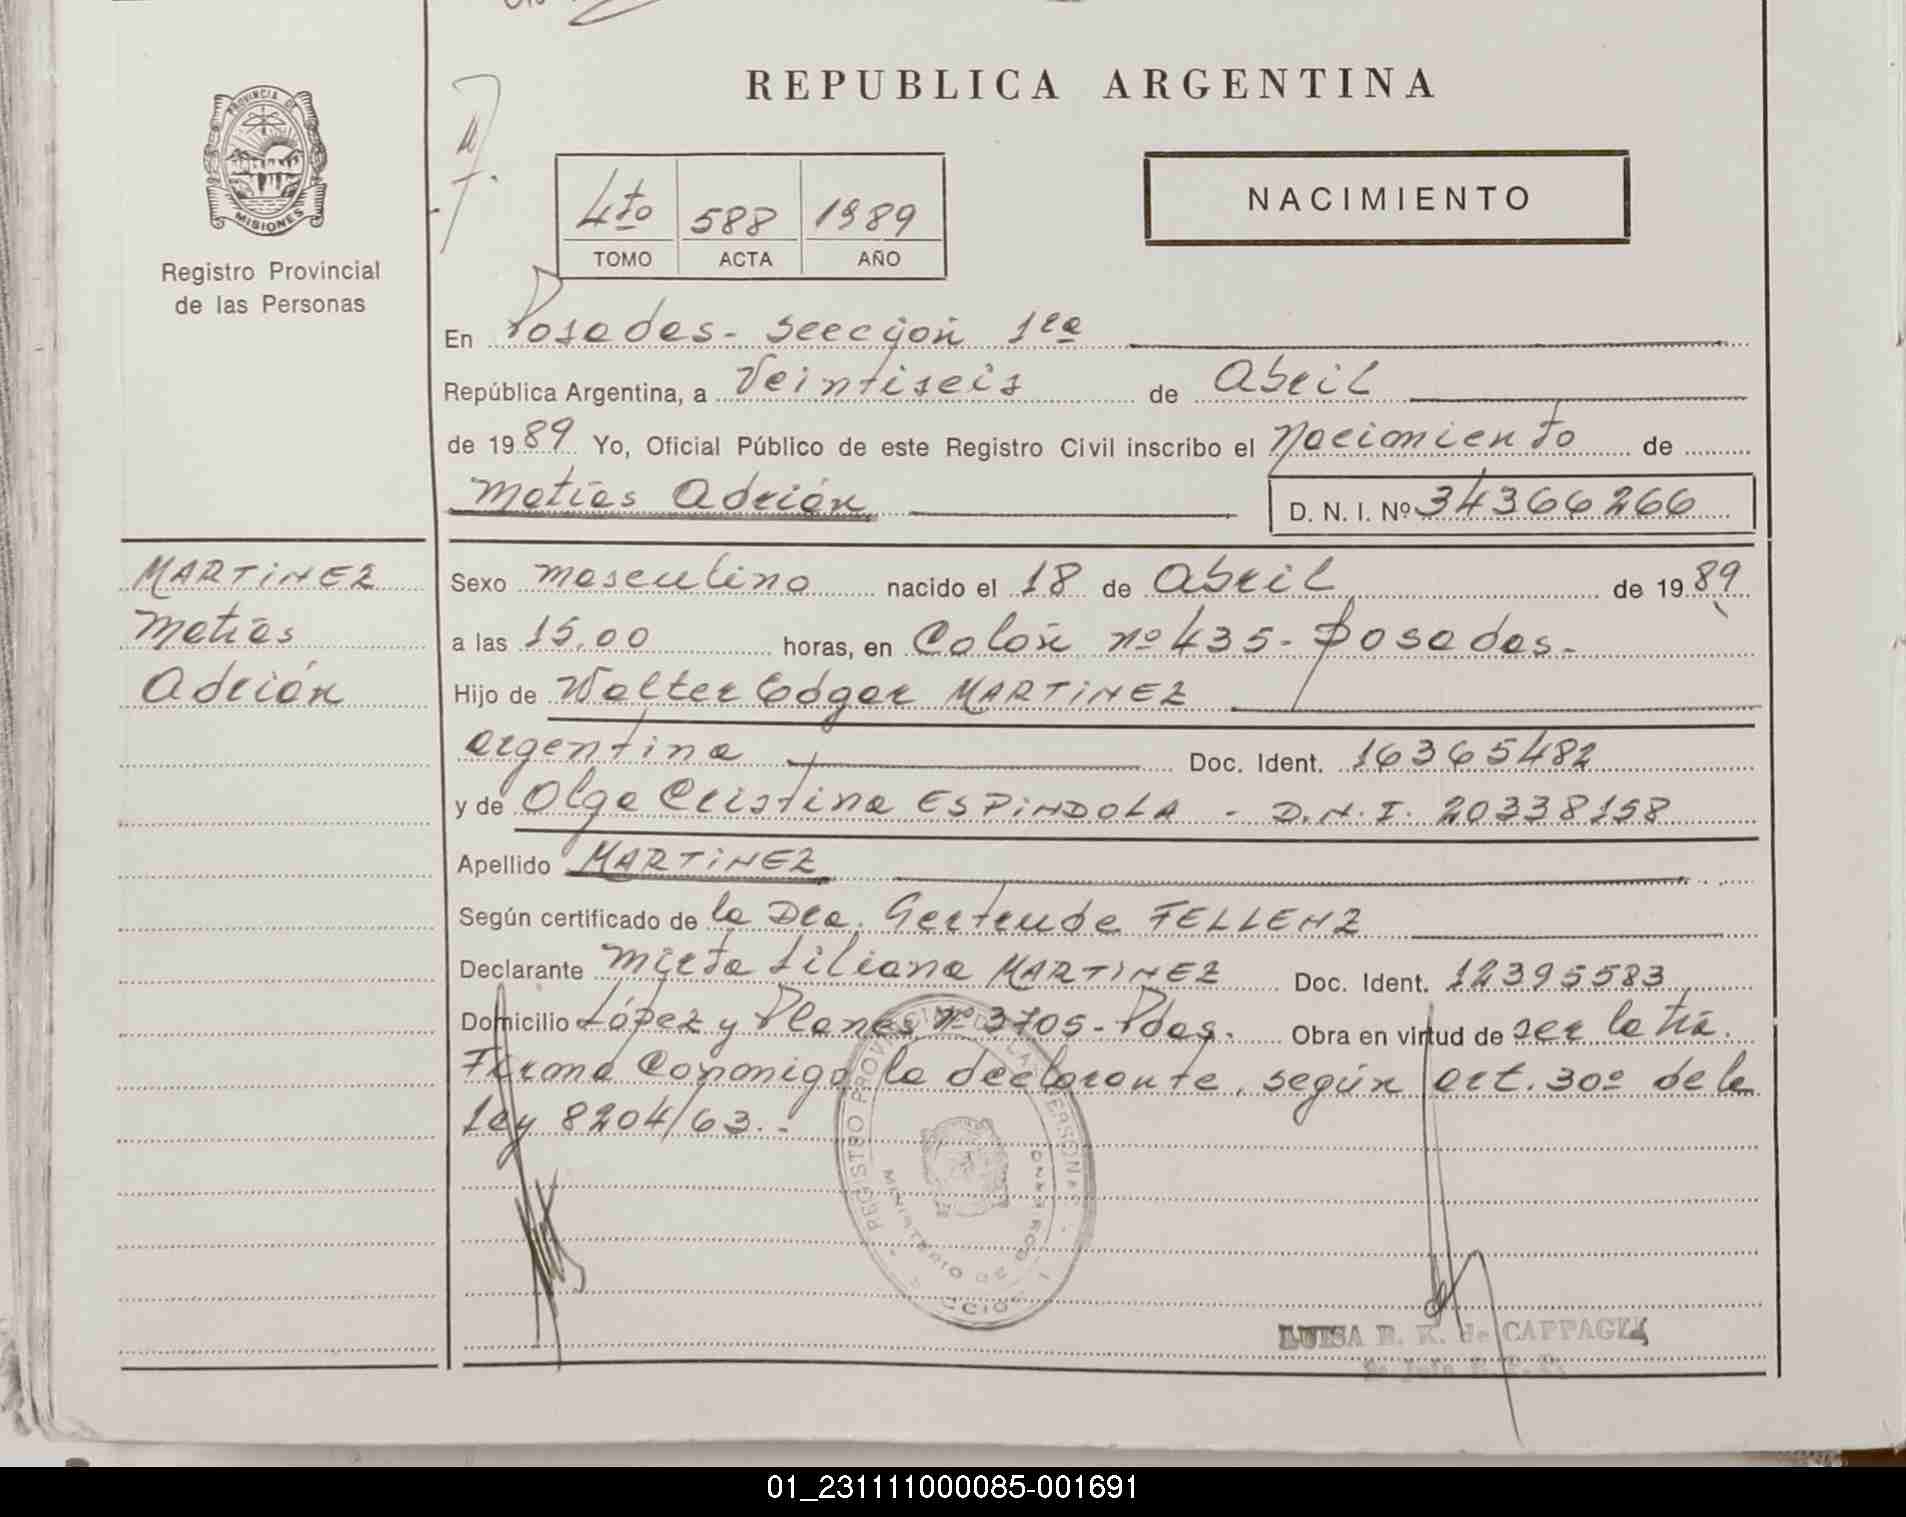 REPUBLICA ARGENTINA
PROVINCIA DE
MISIONES
Registro Provincial
de las Personas
4to 588 1989
TOMO ACTA AÑO
NACIMIENTO
En Posadas - Sección 1ra
República Argentina, a Veintiseis de Abril
de 1989 Yo, Oficial Público de este Registro Civil inscribo el Nacimiento de
Matías Adrián
D. N. I. Nº 34366266
MARTINEZ
Matías
Adrián
Sexo masculino nacido el 18 de Abril de 1989
a las 15.00 horas, en Colón nº 435 - Posadas.-
Hijo de Walter Edgar MARTINEZ
argentina Doc. Ident. 16365482
y de Olga Cristina ESPINDOLA - D.N.I. 20338158
Apellido MARTINEZ
Según certificado de la Dra. Gertrude FELLENZ
Declarante Mirta Liliana MARTINEZ Doc. Ident. 12395583
Domicilio López y Planes nº 3705 - Pdas. Obra en virtud de ser la tía.
Firma Conmigo la declarante, según art. 30º de la
Ley 8204/63.-
REGISTRO PROVINCIAL DE LAS PERSONAS
MINISTERIO DE GOBIERNO
LUISA E. K. de CAPPAGLI
01_231111000085-001691